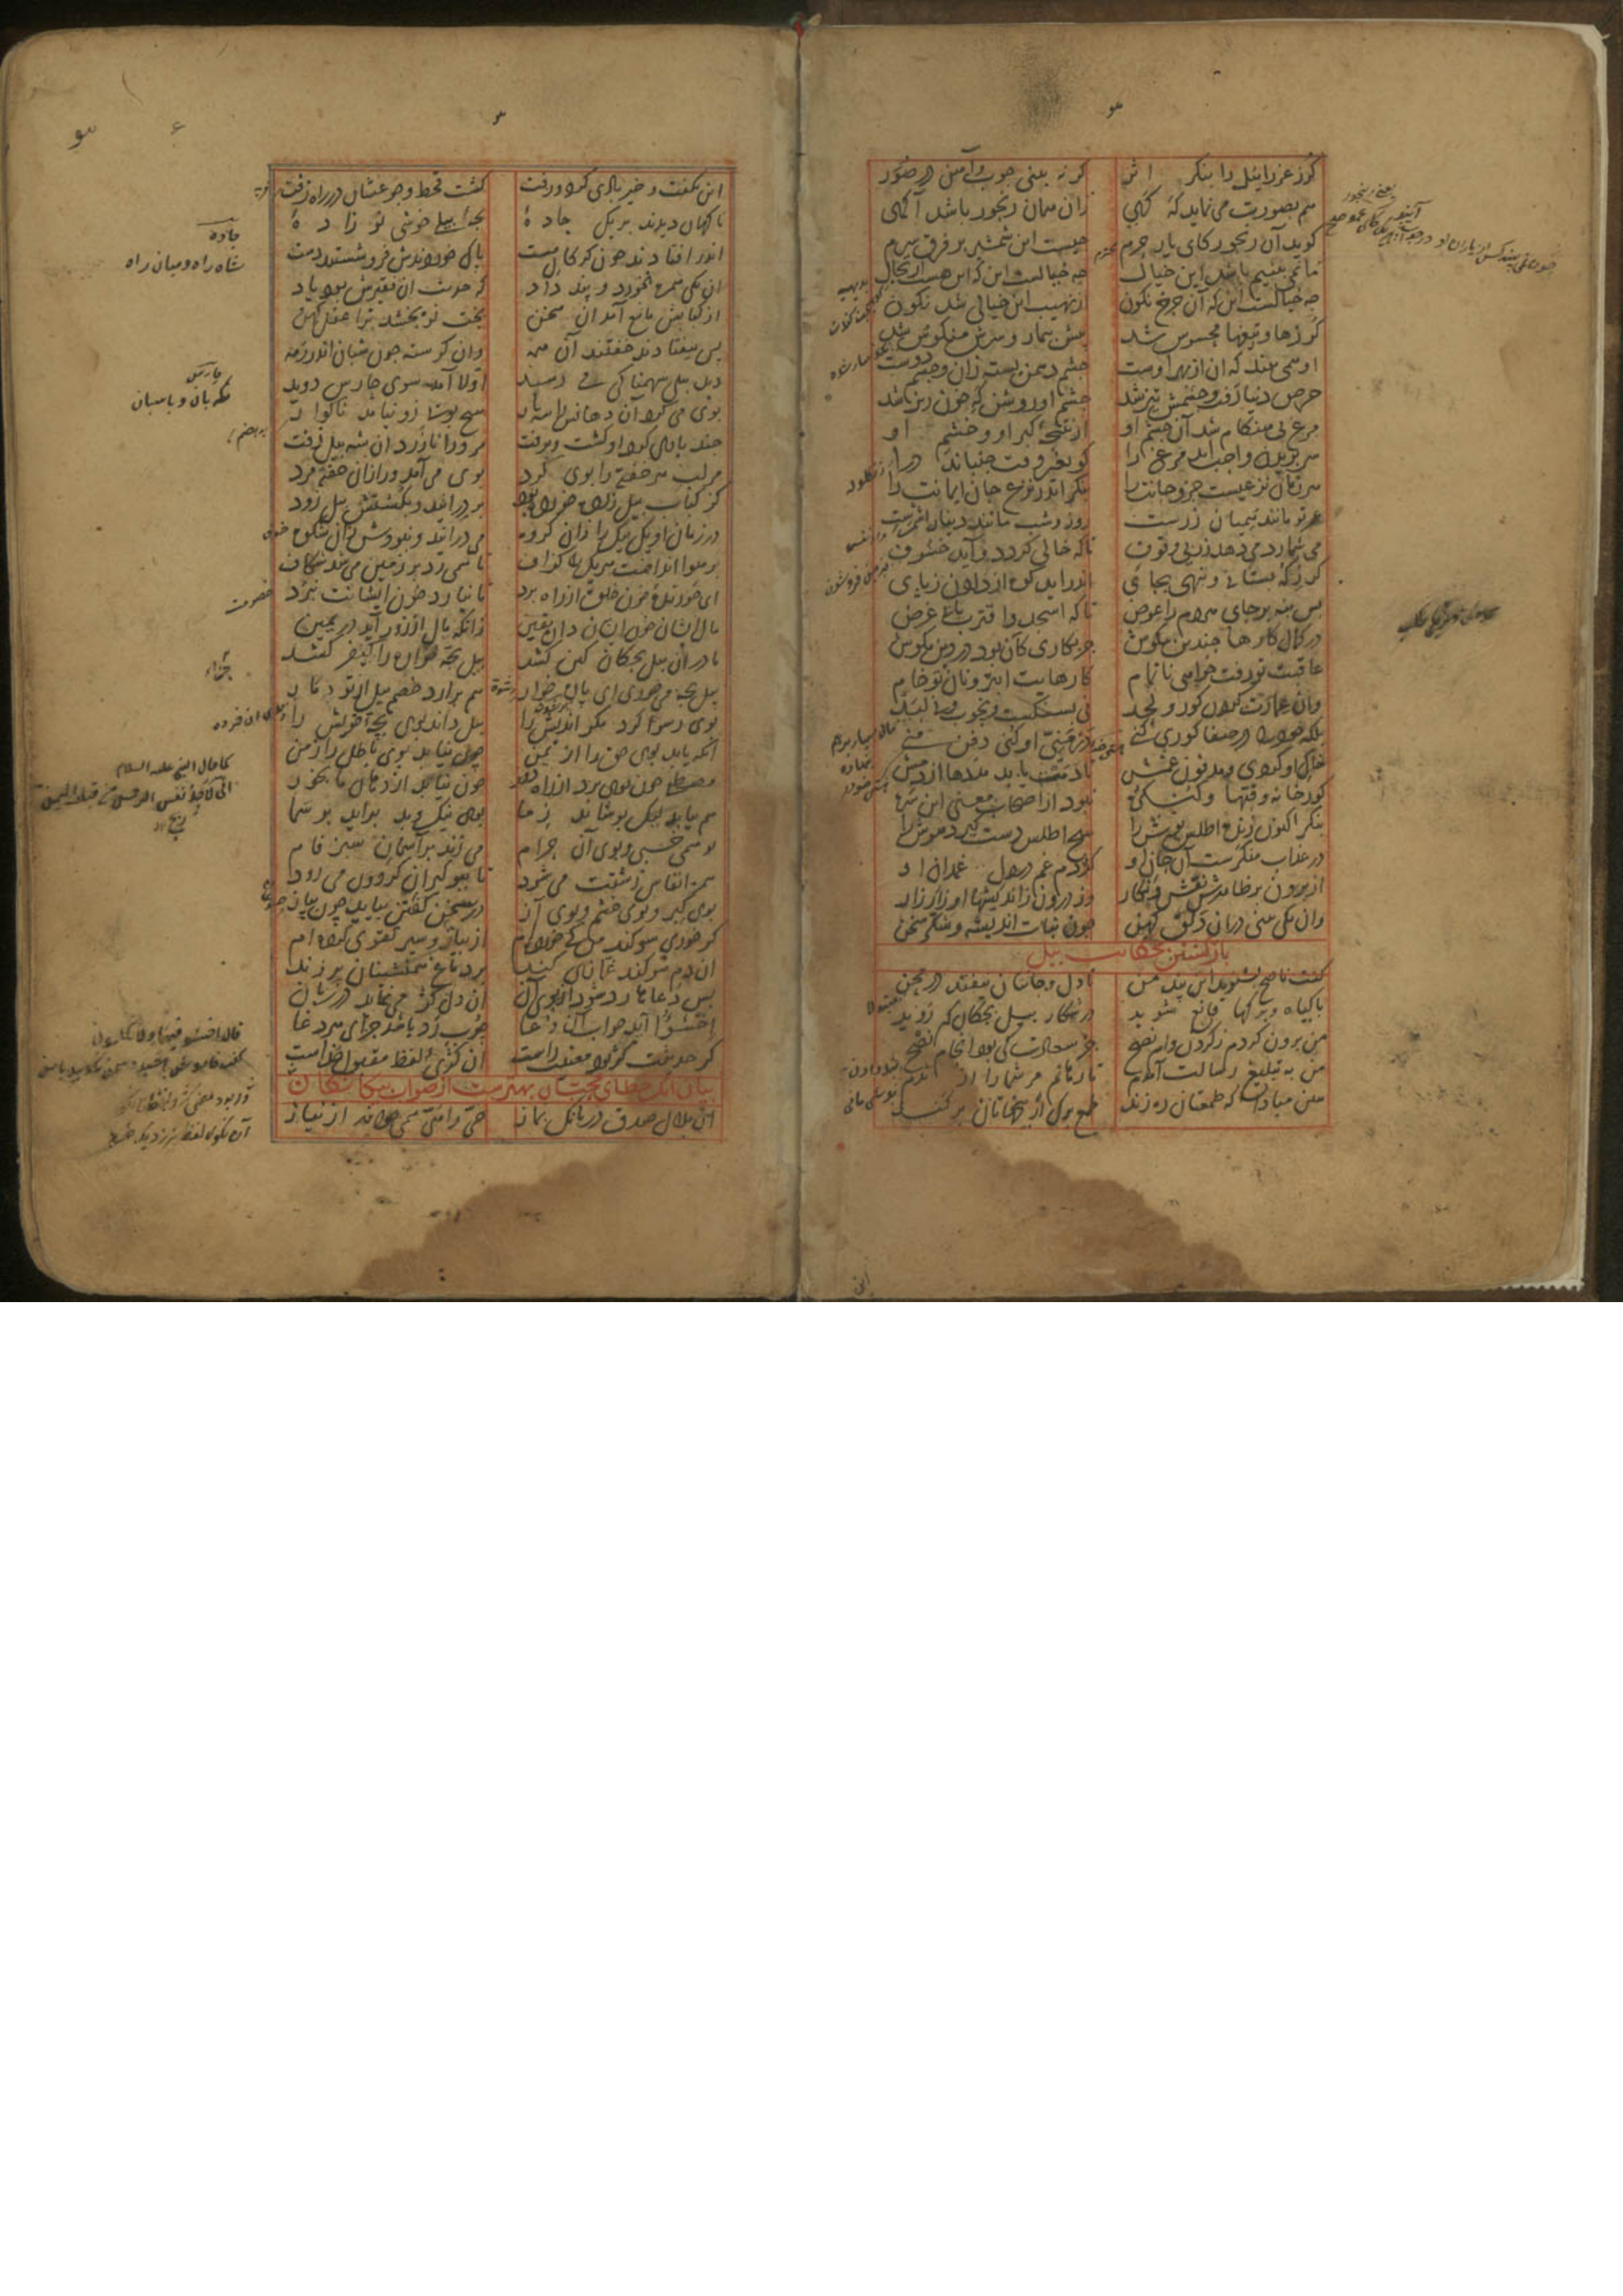 گرز عزراییل را بنگر اثر
گر نه بینی چوب و آهن در صور
هم بصورت می نماید که گهی
زان همان رنجور باشد آگهی
گوید آن رنجور کای یار حرم
چیست این شمشیر بر فرق سرم
ما نمی بینیم باشد این خیال
چه خیالست این که این هست ارتحال
چه خیالست این که آن چرخ نگون
از نهیب این خیالی شد نگون
گرزها و تیغها محسوس شد
پیش بیمار و سرش منکوس شد
او همی بیند که آن از بهر اوست
چشم دشمن بسته زان و چشم دوست
حرص دنیا رفت و چشمش تیز شد
چشم او روشن که چون ریز شد
مرغ بی هنگام شد آن چشم او
از نتیجه کبر او و خشم او
سر بریدن واجب آید مرغ را
کو بغیر وقت جنباند درا
هر زمان نزعیست جزو جانت را
بنگر اندر نزع جان ایمانت را
عمر تو مانند همیان زرست
روز و شب مانند دینار اشمرست
می شمارد می دهد زر بی وقوف
تا که خالی گردد و آید خسوف
گر ز که بستانی و ننهی بجای
اندر آید کوه از دادن ز پای
پس بنه بر جای هر دم را عوض
تا که اسجد واقترب یابی غرض
در تمام کارها چندین مکوش
جز بکاری کان بود در دین مکوش
عاقبت تو رفت خواهی ناتمام
کارهایت ابتر و نان تو خام
وان عمارت کردن گور و لحد
نی بسنگست و بچوب و نی لبد
بلکه خود را در صفا گوری کنی
در منیّ او کنی دفن منی
خاک او گردی و مدفون غمش
تا دمت یابد مددها از دمش
گور خانه و قبها و کنگره
نبود از اصحاب معنی این سره
بنگر اکنون زنده اطلس پوش را
هیچ اطلس دست گیرد هوش را
در عذاب منکرست آن جان او
کژدم غم در دل غمدان او
از برون بر ظاهرش نقش و نگار
وز درون ز اندیشها او زار زار
وان یکی بینی در آن دلق کهن
چون نبات اندیشه و شکر سخن
بازگشتن بحکایت پیل
گفت ناصح بشنوید این پند من
تا دل و جانتان نیفتد در محن
با گیاه و برگها قانع شوید
در شکار پیل بچگان کم روید
من برون کردم ز گردن وام نصح
جز سعادت کی بود انجام نصح
من به تبلیغ رسالت آمدم
تا رهانم مر شما را از ندم
هین مبادا که طمعتان ره زند
طمع برگ از بیخهاتان بر کند
این بگفت و خیر بادی کرد و رفت
گشت قحط و جوعشان در راه زفت
ناگهان دیدند بر یکی جادهٔ
بچهٔ پیلی خوشی نو زادهٔ
اندر افتادند چون گرگان مست
پاک خوردندش فرو شستند دست
آن یکی همره نخورد و پند داد
که حدیث آن فقیرش بود یاد
از کبابش مانع آمد آن سخن
بخت نو بخشد ترا عقل کهن
پس بیفتادند خفتند آن همه
وان گرسنه چون شبان اندر رمه
دید پیلی سهمناکی می رسید
اولا آمد سوی حارس دوید
بوی می کرد آن دهانش را سه بار
هیچ بویی زو نیامد ناگوار
چند باری گرد او گشت و برفت
مر ورا نازرد آن شه پیل زفت
هر لب هر خفته را بوی کرد
بوی می آمد ورا زان خفته مرد
کز کباب پیل زاده خورده بود
بر درانید و بکشتش پیل زود
در زمان او یک بیک را زان گروه
می درانید و نبودش زان شکوه
بر هوا انداخت هر یک را گزاف
تا همی زد بر زمین می شد شکاف
ای خورنده خون خلق از راه برد
تا نیارد خون ایشانت نبرد
مال ایشان خون ایشان دان یقین
زانکه مال از زور آید در یمین
مادر آن پیل بچگان کین کشد
پیل بچه خواره را کیفر کشد
پیل بچه می خوری ای پاره خوار
هم برارد خصم پیل از تو دمار
بوی رسوا کرد مکر اندیش را
پیل داند بوی بچه خویش را
آنکه یابد بوی حق را از یمن
چون نیابد بوی باطل را ز من
مصطفی چون بوی برد از راه دور
چون نیابد از دهان ما بخور
هم بیابد لیک پوشاند ز ما
بوی نیک و بد براید بر سما
تو همی خسپی و بوی آن حرام
می زند بر آسمان سبز فام
همره انفاس زشتت می شود
تا ببو گیران گردون می رود
بوی کبر و بوی خشم و بوی آز
در سخن گفتن بیاید چون پیاز
گر خوری سوگند من کی خورده ام
از پیاز و سیر تقوی کرده ام
آن دم سوگند غمازی کند
بر دماغ همنشینان بر زند
پس دعاها رد شود از بوی آن
آن دل کژ می نماید در زبان
اخسئوا آید جواب آن دعا
چوب رد باشد جزای هر دغا
گر حدیثت کژ بود معنیت راست
آن کژی لفظ مقبول خداست
بیان آنک خطای محبان بهترست از صواب بیگانگان
آن بلال صدق در بانگ نماز
حی را هی همی خواند از نیاز
جاده
شاه راه و میان راه
حارس
نگه بان و پاسبان
خصومت
جزاء
کما قال النبی علیه السلام
انی لاجد نفس الرحمن من قبل الیمن
قال اخسئوا فیها ولا تکلمون